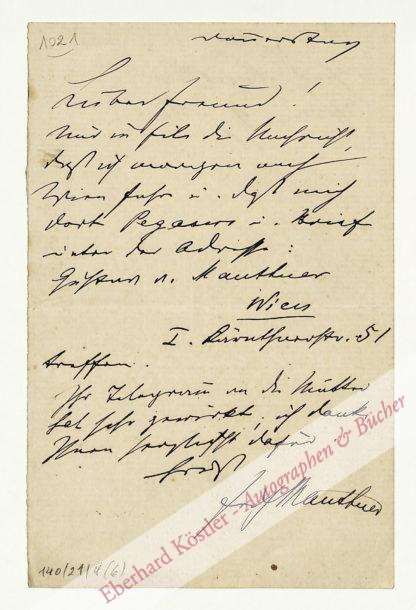 1021
Donnerstag
Lieber Freund!
Nur in Eile die Nachricht,
daß ich morgen nach
Wien fahre u. daß mich
dort Pegasus u. Brief
unter der Adresse:
Gustav v. Mauthner
Wien
I. Kärnthnerstr. 51
treffen.
Ihr Telegramm an die Mutter
hat sehr gewirkt, ich danke
Ihnen herzlichst dafür
Mauthner
140/21/ (6)
Eberhard Köstler - Autographen & Bücher